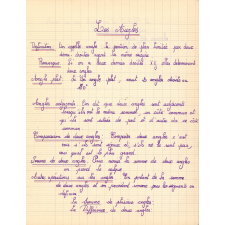 Les Angles
Définition: On appelle angle la portion de plan limitée par deux
demi-droites ayant la même origine.
Remarque: Si on a deux demi-droites
deux angles.
Angle plat: Un angle plat, vaut 2 angles droits ou
180°
Angles adjacents: On dit que deux angles sont adjacents
lorsqu'ils ont le même sommet, un côté commun et
qu'ils sont situés de part et d'autre du côté
commun.
Comparaison de deux angles: Comparer deux angles c'est
voir s'ils sont égaux, s'ils ne le sont pas,
quel est le plus grand.
Somme de deux angles: Pour avoir la somme de deux angles
on prend
Autres opérations sur les angles: On parlent de la somme
de deux angles et on procédant comme pour les segments on
définit:
La somme de plusieurs angles
La différence de deux angles